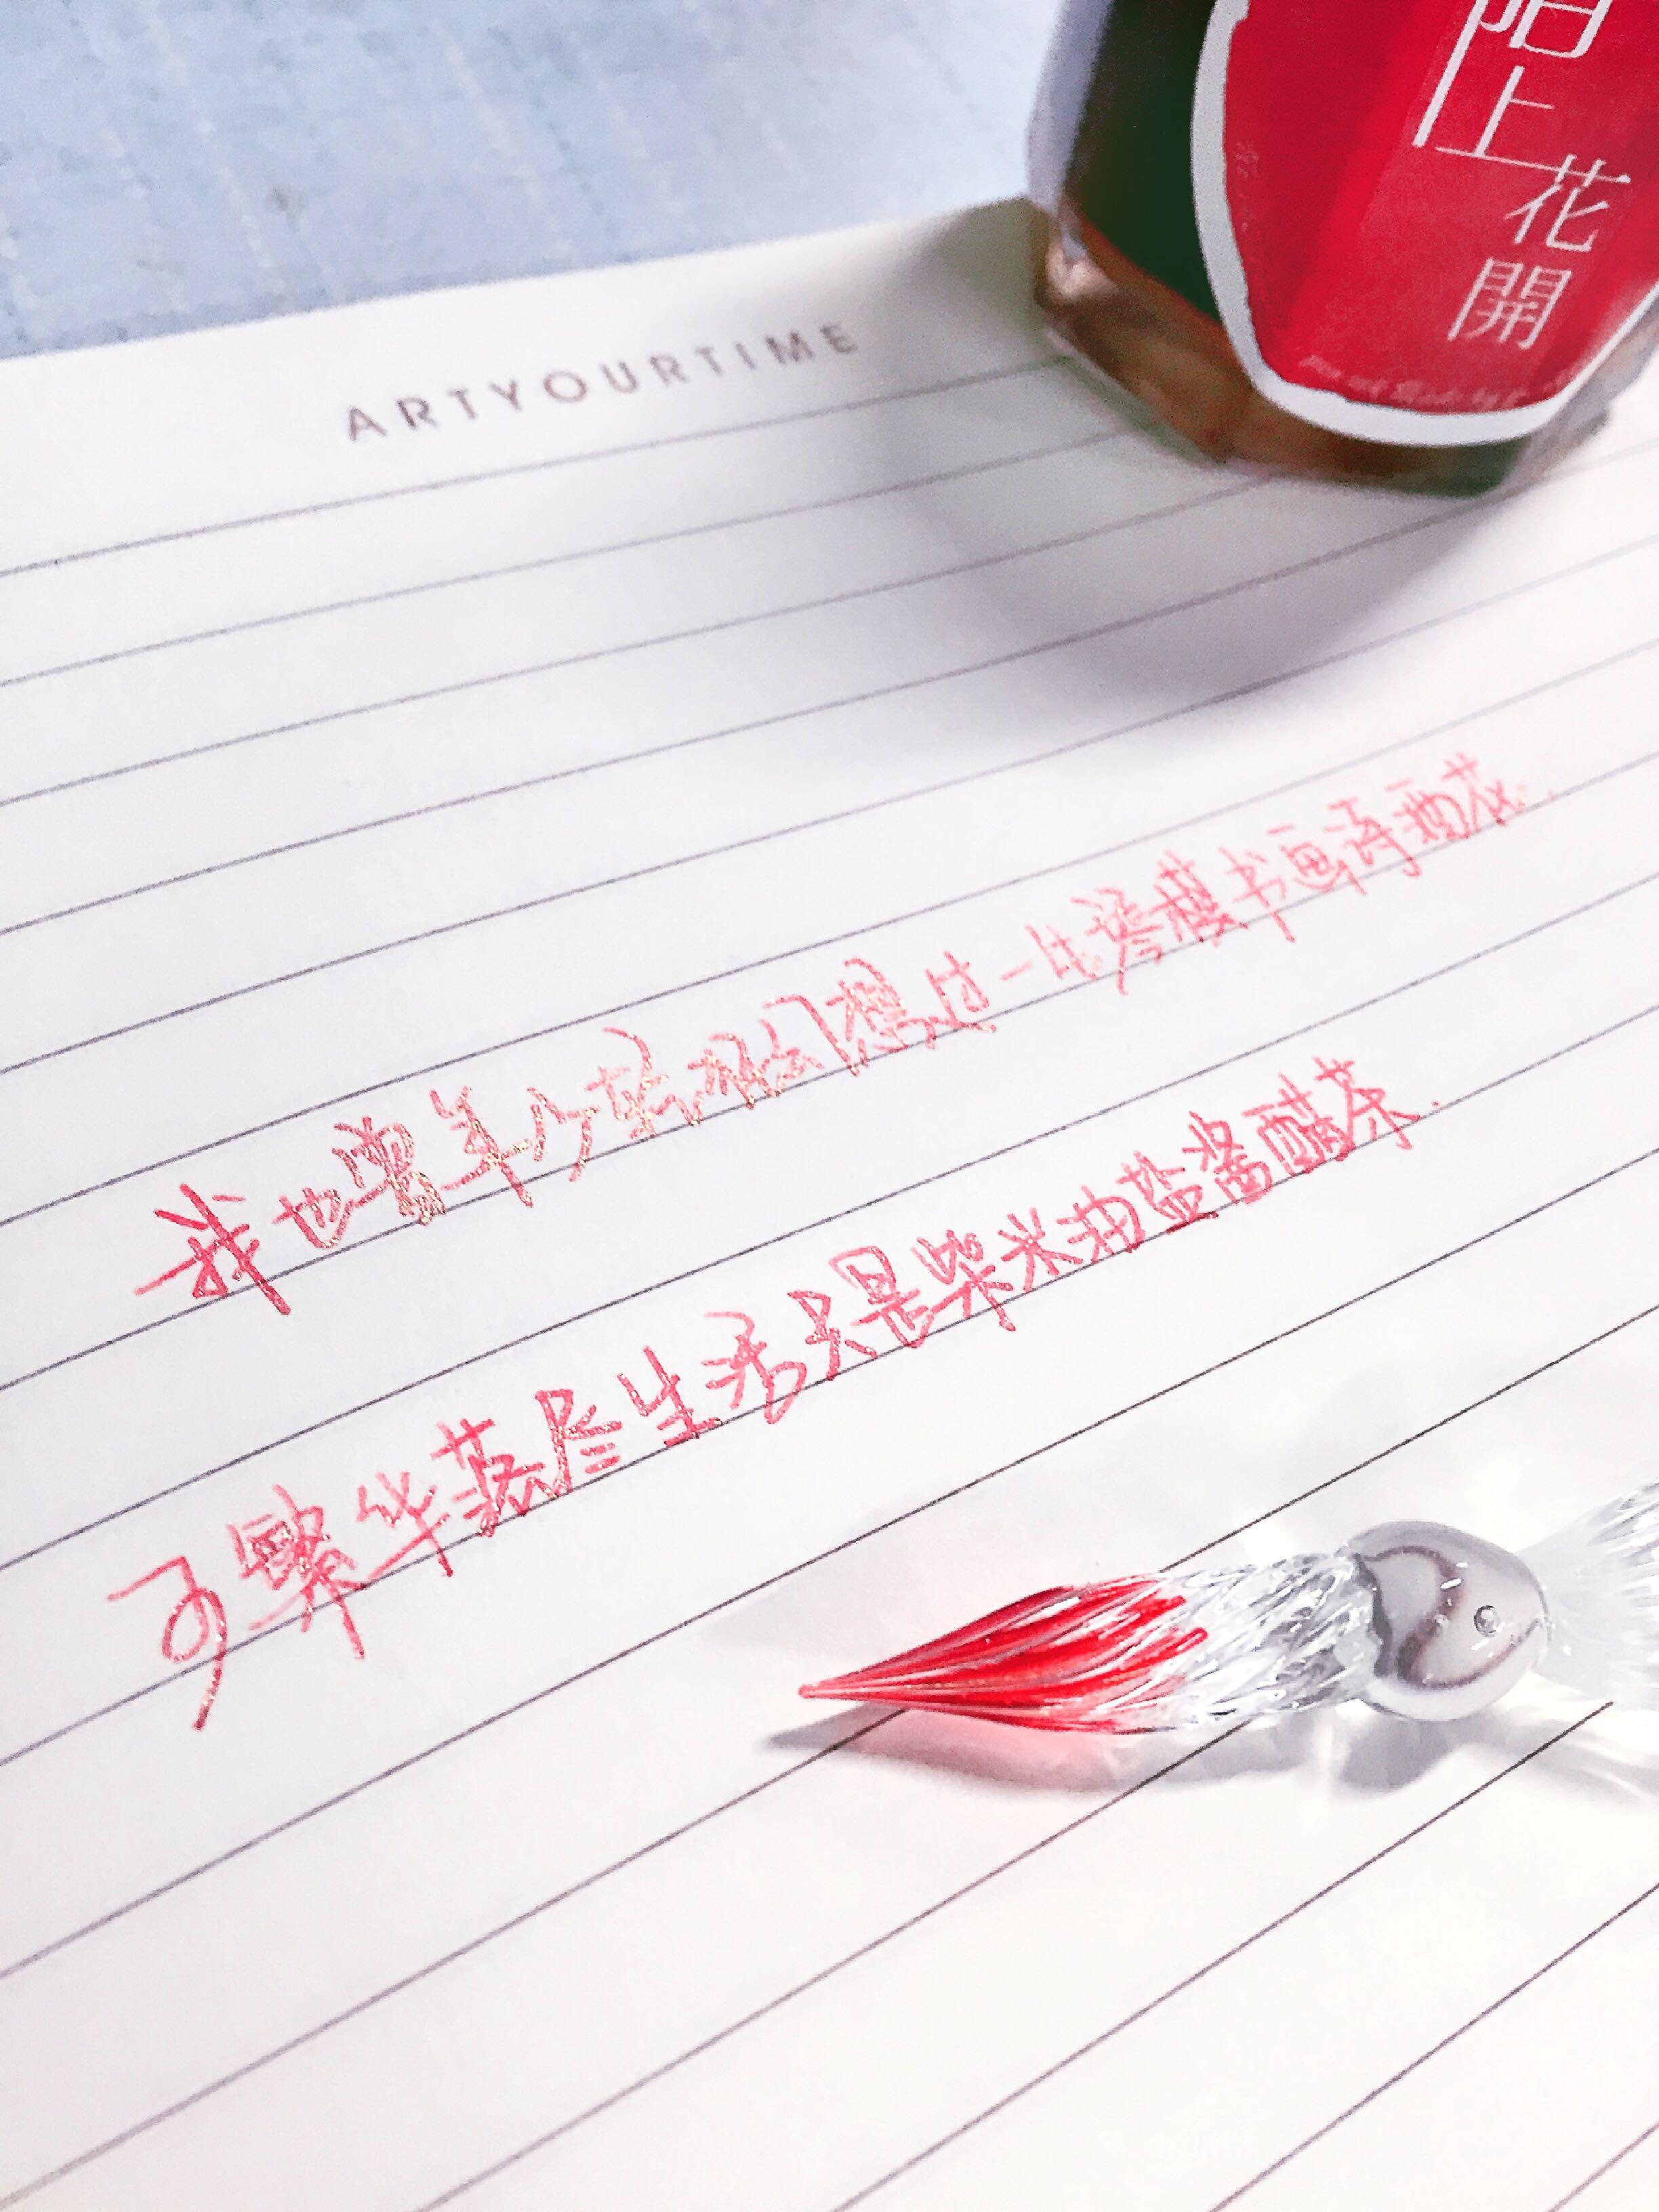 陌上
花
開
ARTYOURTIME
我也曾年少轻狂幻想过一生琴棋书画诗酒花.
可繁华落尽生活只是柴米油盐酱醋茶.